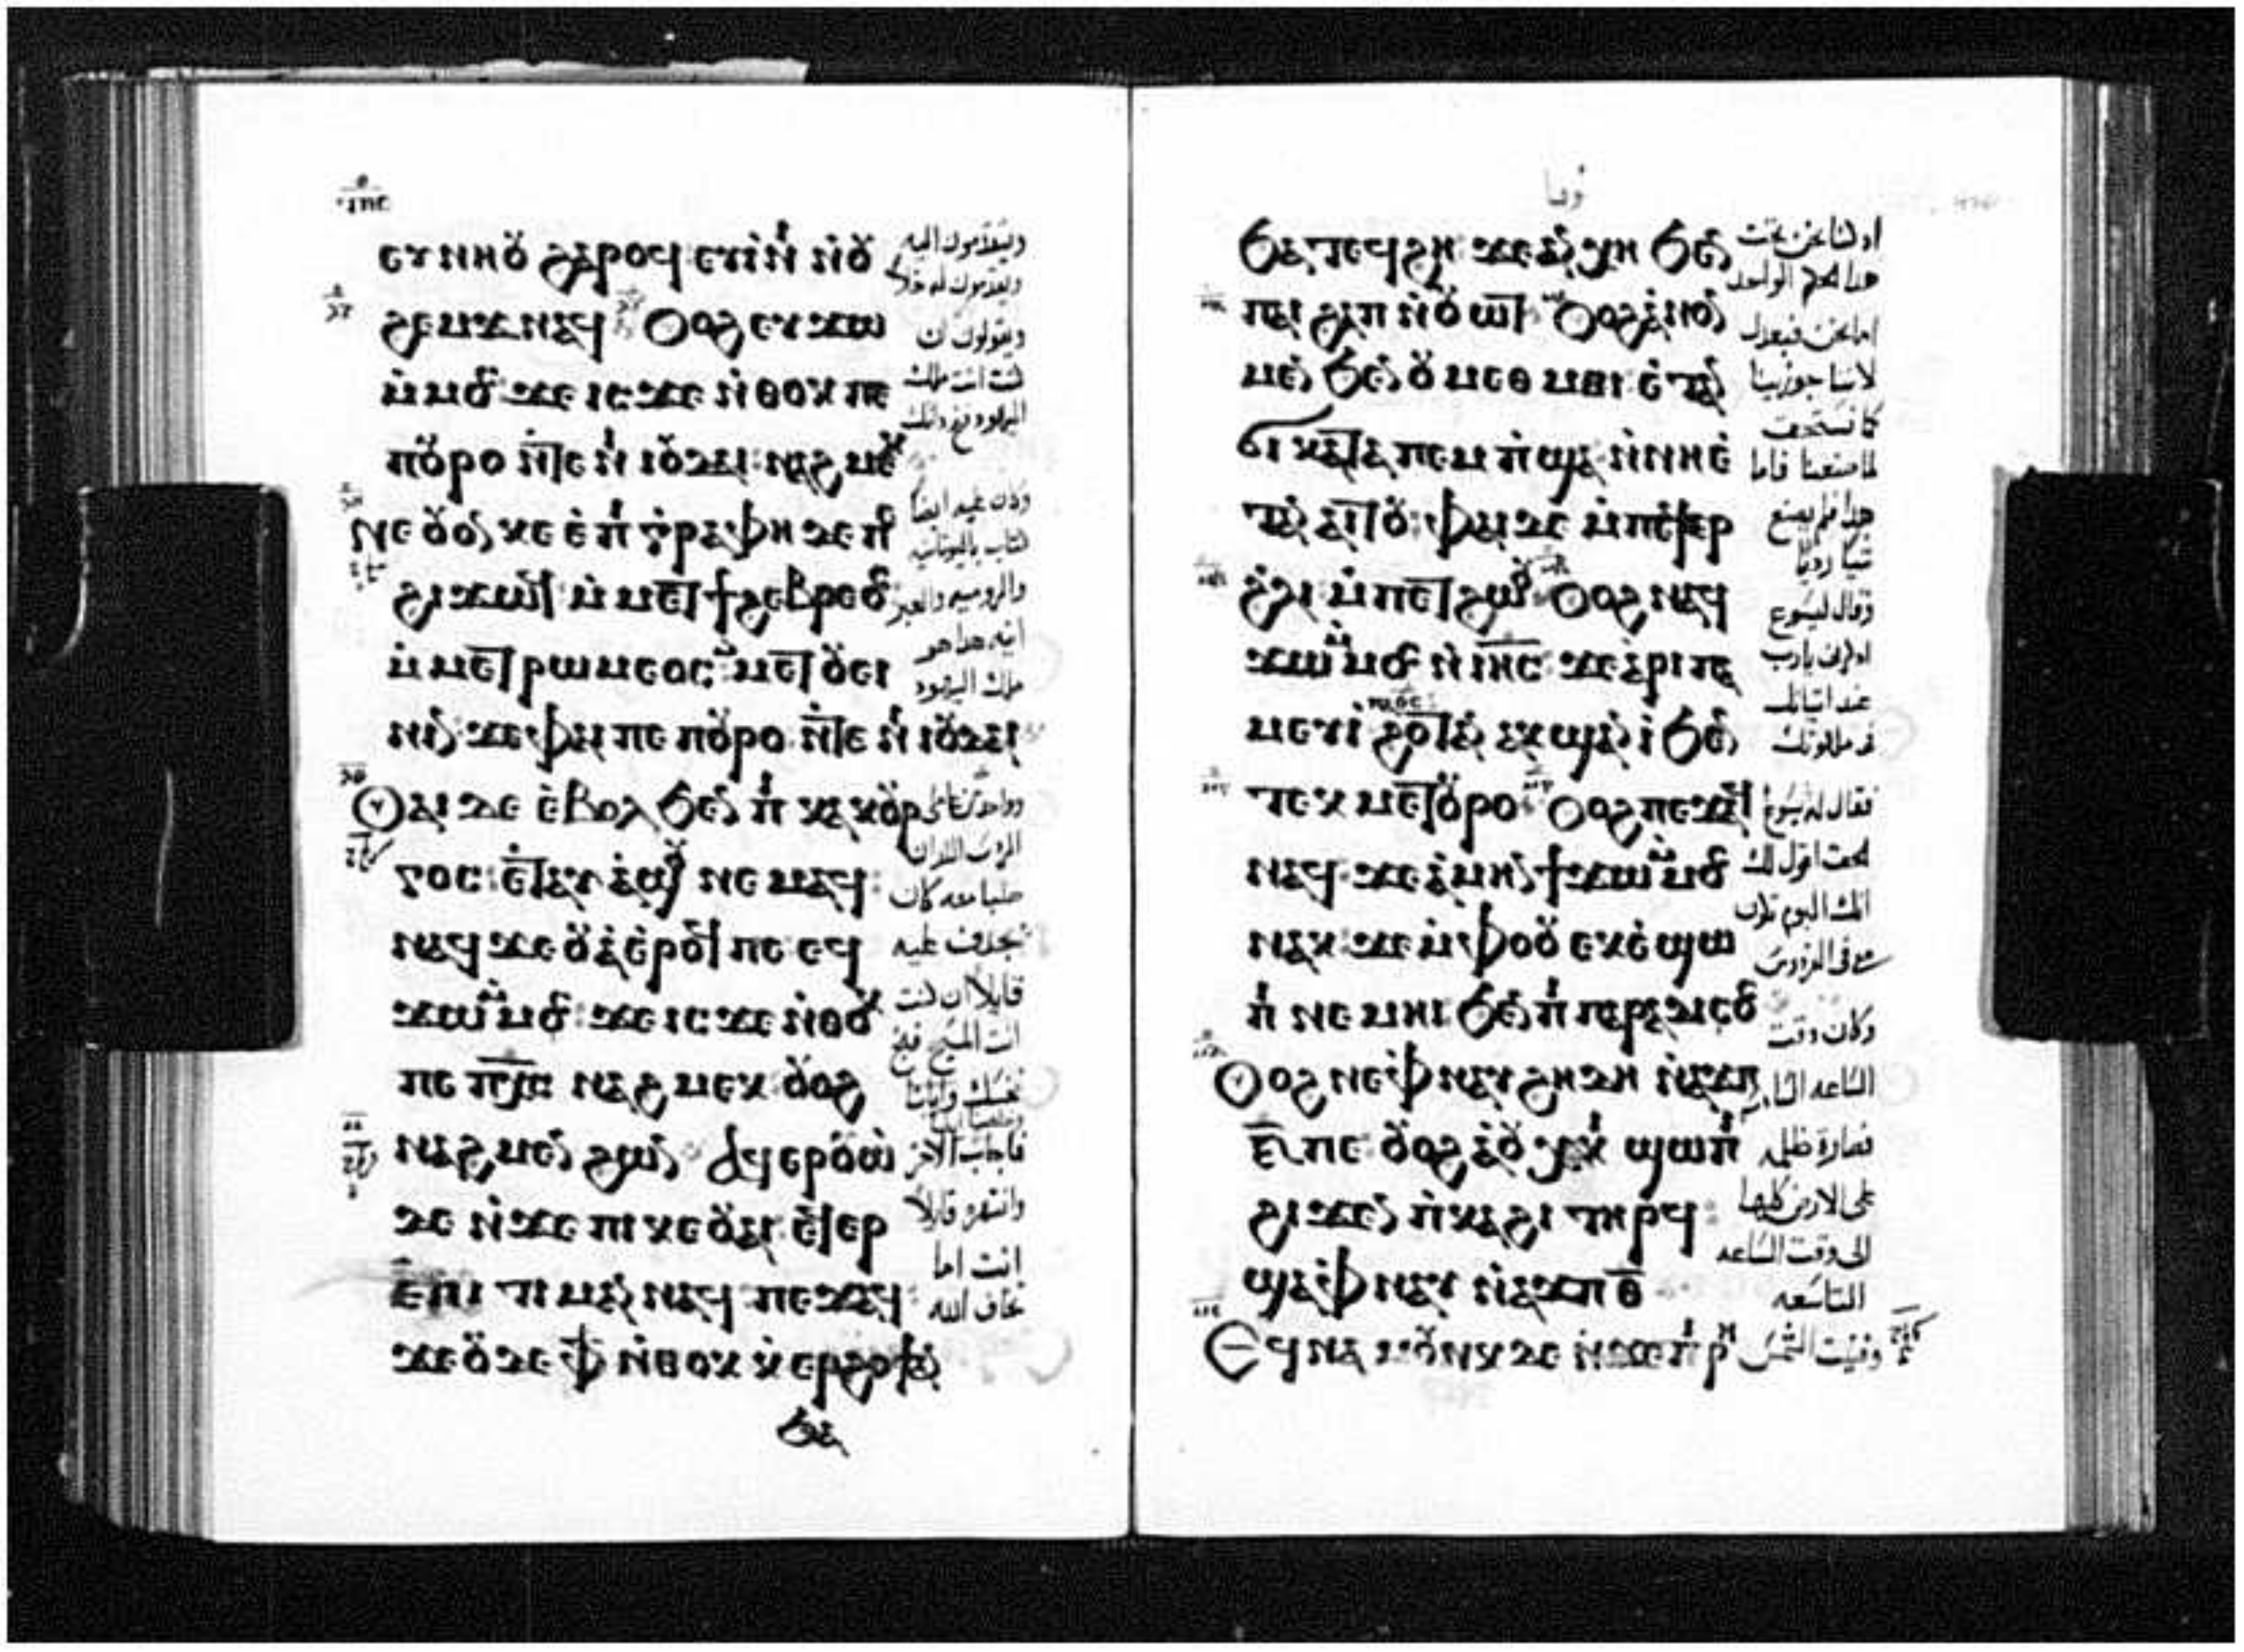 ⲉⲩⲛⲏⲟⲩ ϩⲁⲣⲟϥ ⲉⲩⲓⲛⲓ ⲛⲟⲩ
ϩⲉⲙϫ ⲛⲁϥ Ⲟⲩⲟϩ ⲉⲩϫⲱ
ⲙⲙⲟⲥ ϫⲉ ⲓⲥϫⲉ ⲛⲑⲟⲕ ⲡⲉ
ⲡⲟⲩⲣⲟ ⲛⲧⲉ ⲛⲓⲓⲟⲩⲇⲁⲓ ⲛⲁϩⲙⲉⲕ
Ⲛⲉ ⲟⲩⲟⲛ ⲕⲉ ⲉⲡⲓⲅⲣⲁⲫⲏ ⲇⲉ ⲡⲉ
ϩⲓϫⲱϥ ⲙⲙⲉⲧϩⲉⲃⲣⲉⲟⲥ
ⲙⲙⲉⲧⲣⲱⲙⲉⲟⲥ ⲙⲙⲉⲧⲟⲩⲉⲓ
ⲛⲓⲛ ϫⲉ ⲫⲁⲓ ⲡⲉ ⲡⲟⲩⲣⲟ ⲛⲧⲉ ⲛⲓⲓⲟⲩⲇⲁⲓ
Ⲟⲩⲁⲓ ⲇⲉ ⲉⲃⲟⲗ ϧⲉⲛ ⲛⲓ ⲕⲁⲕⲟⲩⲣ
ⲅⲟⲥ ⲉⲧⲁⲩ ⲁϣⲟⲩ ⲛⲉⲙⲁϥ
ⲛⲁϥ ϫⲉⲟⲩⲁ ⲉⲣⲟϥ ⲡⲉ ⲉϥ
ϫⲱ ⲙⲙⲟⲥ ϫⲉ ⲓⲥϫⲉ ⲛⲑⲟⲕ
ⲡⲉ ⲡⲭⲥ ⲛⲁϩⲙⲉⲕ ⲟⲩⲟϩ
ⲛⲁϩⲙⲉⲛ ϩⲱⲛ Ⲁϥⲉⲣⲟⲩⲱ
ⲇⲉ ⲛϫⲉ ⲡⲓⲕⲉⲟⲩⲁⲓ ⲉϥⲉⲣ
ⲉⲡⲓⲧⲓⲙⲁⲛ ⲛⲁϥ ⲡⲉϫⲁϥ
ϫⲉ ⲟⲩⲇⲉ ⲫϯ ⲛⲑⲟⲕ ⲕⲉⲣϩⲟϯ ⲁⲛ
ϧⲁ
ويتقدمون اليه
ويقدمون له خلا
ويقولون ان
كنت انت ملك
اليهود فنج ذاتك
وكان عليه ايضا
كتاب باليونانيه
والروميه والعبر
انيه هذا هو
ملك اليهود
صلبا معه كان
يجدف عليه
قايلا ان كنت
انت المسيح فنج
نفسك وايانا
فاجاب الاخر
وانتهره قايلا
انت اما
تخاف الله
ϧⲁⲧⲉϥϩⲏ ϫⲉ ⲁⲛⲭⲏ ϧⲉⲛ
ⲡⲁⲓ ϩⲁⲡ ⲛⲟⲩⲱⲧ Ⲟⲩⲟϩ ⲁⲛⲟⲛ
ⲙⲉⲛ ϧⲉⲛ ⲟⲩⲙⲉⲑⲙⲏⲓ ⲉⲧⲁⲛ
ϭⲓ ⲕⲁⲧⲁ ⲡⲉⲙⲡϣⲁ ⲛⲛⲏⲉ
ⲧⲁⲛⲁⲓⲧⲟⲩ ⲫⲁⲓ ⲇⲉ ⲙⲡⲉϥⲉⲣ
ϩⲗⲓ ⲙⲡⲉⲧϩⲱⲟⲩ Ⲟⲩⲟϩ ⲛⲁϥ
ϫⲱ ⲙⲙⲟⲥ ⲛⲓⲏⲥ ϫⲉ ⲁⲣⲓⲡⲁ
ⲙⲉⲩⲓ ϩⲟⲧⲁⲛ ⲁⲕϣⲁⲛⲓ ϧⲉⲛ
ⲧⲉⲕⲙⲉⲧⲟⲩⲣⲟ Ⲟⲩⲟϩ ⲡⲉϫⲁϥ
ⲛⲁϥ ϫⲉ ⲁⲙⲏⲛ ϯϫⲱ ⲙⲙⲟⲥ
ⲛⲁⲕ ϫⲉ ⲙⲫⲟⲟⲩ ⲉⲕⲉϣⲱ
ⲡⲓ ⲛⲉⲙⲏⲓ ϧⲉⲛ ⲡⲓⲡⲁⲣⲁⲇⲓⲥⲟⲥ
Ⲟⲩⲟϩ ⲛⲉ ⲫⲛⲁⲩ ϩⲏⲇⲏ ⲛⲁϫⲡ
ⲋ ⲡⲉ ⲟⲩⲟϩ ⲁⲟⲩⲭⲁⲕⲓ ϣⲱⲡⲓ
ϩⲓϫⲉⲛ ⲡⲕⲁϩⲓ ⲧⲏⲣϥ
ϣⲁ ⲫⲛⲁⲩ ⲛⲁϫⲡ ⲑ
Ⲉϥⲛⲁⲙⲟⲩⲛⲕ ⲇⲉ ⲛϫⲉ ⲡⲓⲣⲏ
هذا الحكم الواحد
اما نحن فبعدل
لاننا جوزينا
كما نستحق
لما صنعنا فاما
هذا فلم يصنع
شيا رديا
وقال ليسوع
اذكرني يارب
عند اتيانك
في ملكوتك
فقال له يسوع
الحق اقول لك
انك اليوم تكون
معي في الفردوس
وكان وقت
فصارة ظلمه
على الارض كلها
الى وقت الساعه
التاسعه